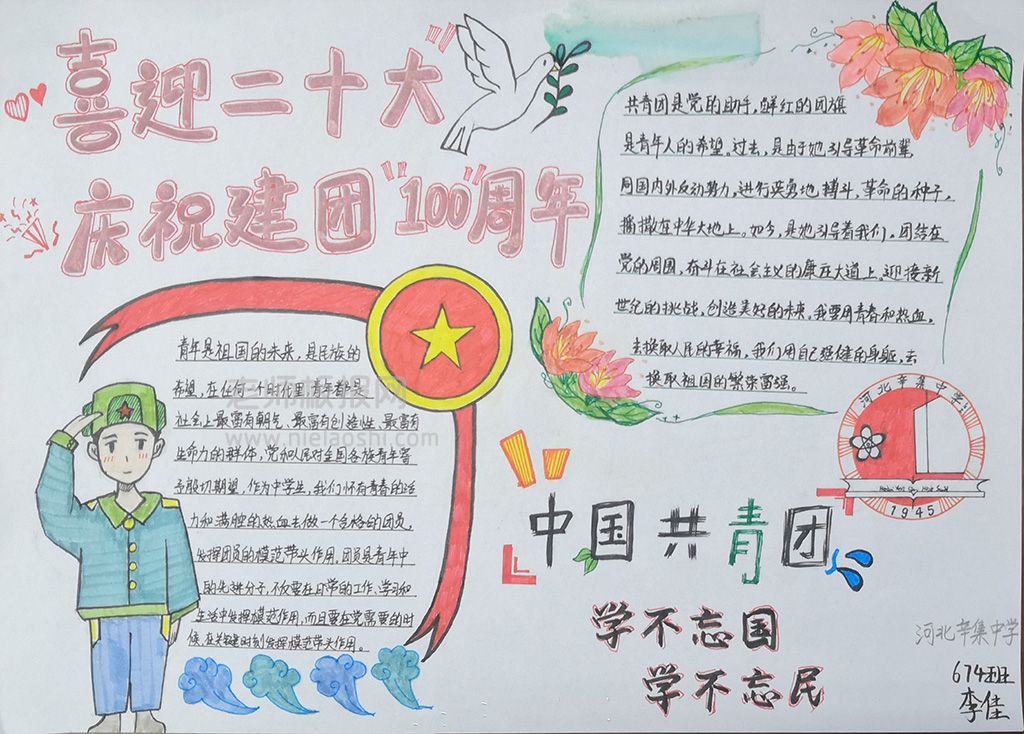 喜迎二十大
庆祝建团"100"周年
共青团是党的助手,鲜红的团旗
是青年人的希望。过去,是由于她引导革命前辈,
同国内外反动势力,进行英勇地搏斗,革命的种子,
播撒在中华大地上。如今,是她引导着我们。团结在
党的周围,奋斗在社会主义的康庄大道上。迎接新
世纪的挑战,创造美好的未来。我要用青春和热血。
去换取人民的幸福,我们用自己强健的身躯,去
换取祖国的繁荣富强。
青年是祖国的未来,是民族的
希望。在任何一个时代里,青年都是
社会上最富有朝气、最富有创造性、最富有
生命力的群体,党和人民对全国各族青年寄
予殷切期望,作为中学生,我们怀有青春的活
力和满腔的热血去做一个合格的团员。
发挥团员的模范带头作用,团员是青年中
的先进分子,不仅要在日常的工作、学习和
生活中发挥模范作用,而且要在党需要的时
候,在关键时刻发挥模范带头作用。
老师板报网
www.nielaoshi.com
河北辛集中学
1945
中国共青团
学不忘国
学不忘民
河北辛集中学
674班
李佳